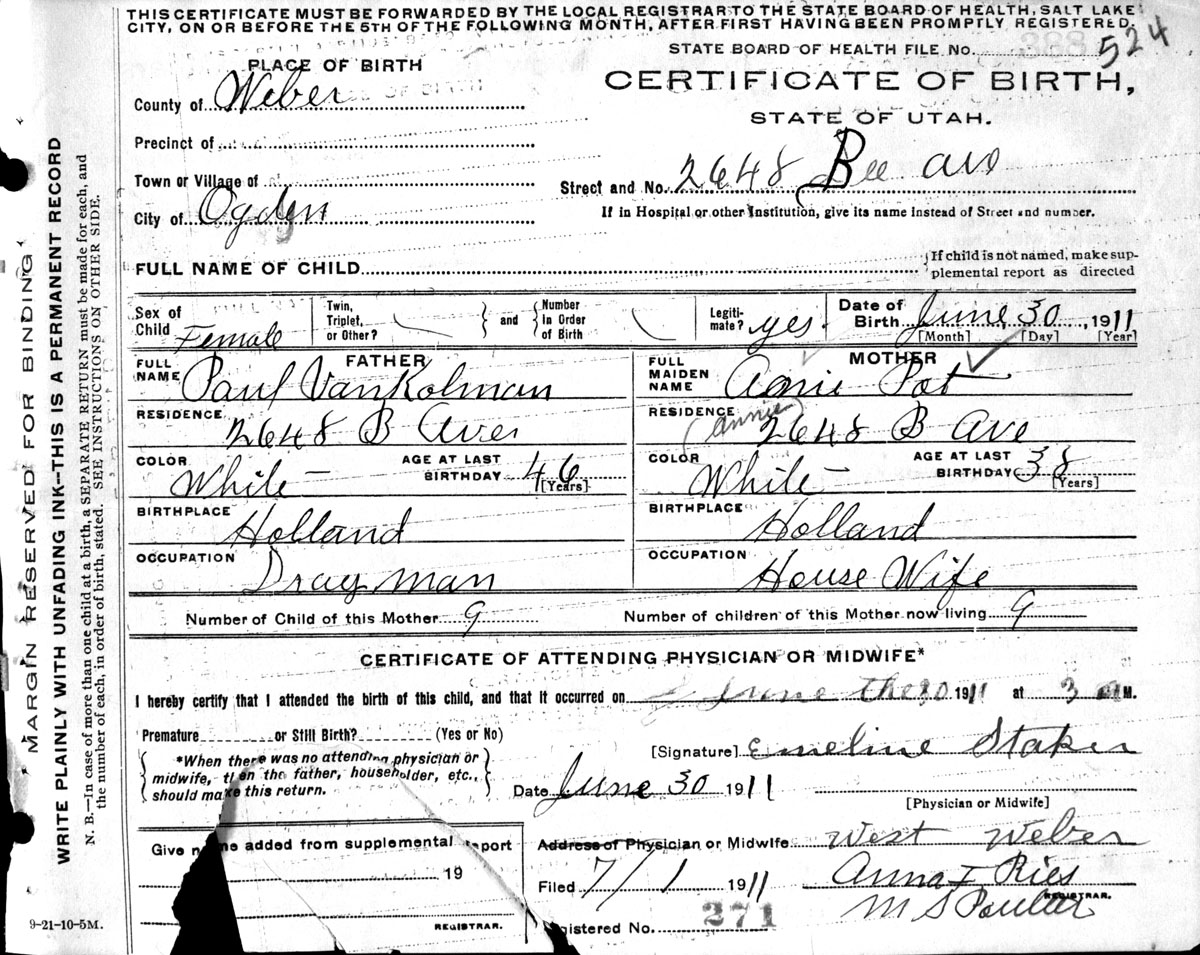 THIS CERTIFICATE MUST BE FORWARDED BY THE LOCAL REGISTRAR TO THE STATE BOARD OF HEALTH, SALT LAKE
CITY, ON OR BEFORE THE 5TH OF THE FOLLOWING MONTH, AFTER FIRST HAVING BEEN PROMPTLY REGISTERED.
STATE BOARD OF HEALTH FILE No. 388 524
PLACE OF BIRTH
CERTIFICATE OF BIRTH,
County of Weber
STATE OF UTAH.
Precinct of
Town or Village of
Street and No. 2648 Bee ave
City of Ogden
If in Hospital or other Institution, give its name instead of Street and number.
FULL NAME OF CHILD
If child is not named, make sup-
plemental report as directed
Sex of Child Female
Twin, Triplet, or Other?
and
Number In Order of Birth
Legiti-mate? yes.
Date of Birth June, 30, 1911
[Month] [Day] [Year]
FATHER
FULL NAME Paul VanKolman
RESIDENCE 2648 B Ave
COLOR White
AGE AT LAST BIRTHDAY 46
[Years]
BIRTHPLACE Holland
OCCUPATION Dray man
MOTHER
FULL MAIDEN NAME Annie Pot
(annie)
RESIDENCE 2648 B Ave
COLOR White
AGE AT LAST BIRTHDAY 38
[Years]
BIRTHPLACE Holland
OCCUPATION House Wife
Number of Child of this Mother 9
Number of children of this Mother now living 9
CERTIFICATE OF ATTENDING PHYSICIAN OR MIDWIFE*
I hereby certify that I attended the birth of this child, and that it occurred on June the 30 1911 at 3 a M.
Premature or Still Birth? (Yes or No)
*When there was no attending physician or
midwife, then the father, householder, etc.,
should make this return.
[Signature] Emeline Staker
Date June 30 1911
[Physician or Midwife]
Address of Physician or Midwife West Weber
Give name added from supplemental report
19
REGISTRAR.
Filed 7/1 1911
Anna F Ries
REGISTRAR.
M S
Registered No. 271
9-21-10-5M.
MARGIN RESERVED FOR BINDING
WRITE PLAINLY WITH UNFADING INK—THIS IS A PERMANENT RECORD
N. B.—In case of more than one child at a birth, a SEPARATE RETURN must be made for each, and
the number of each, in order of birth, stated. SEE INSTRUCTIONS ON OTHER SIDE.